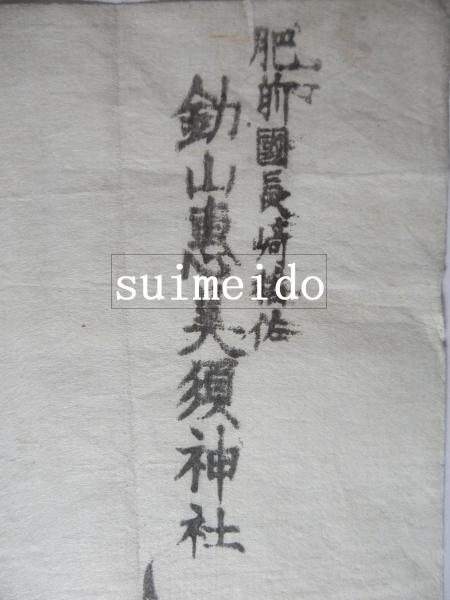 肥前國長崎稲佐
釛山惠美須神社
suimeido